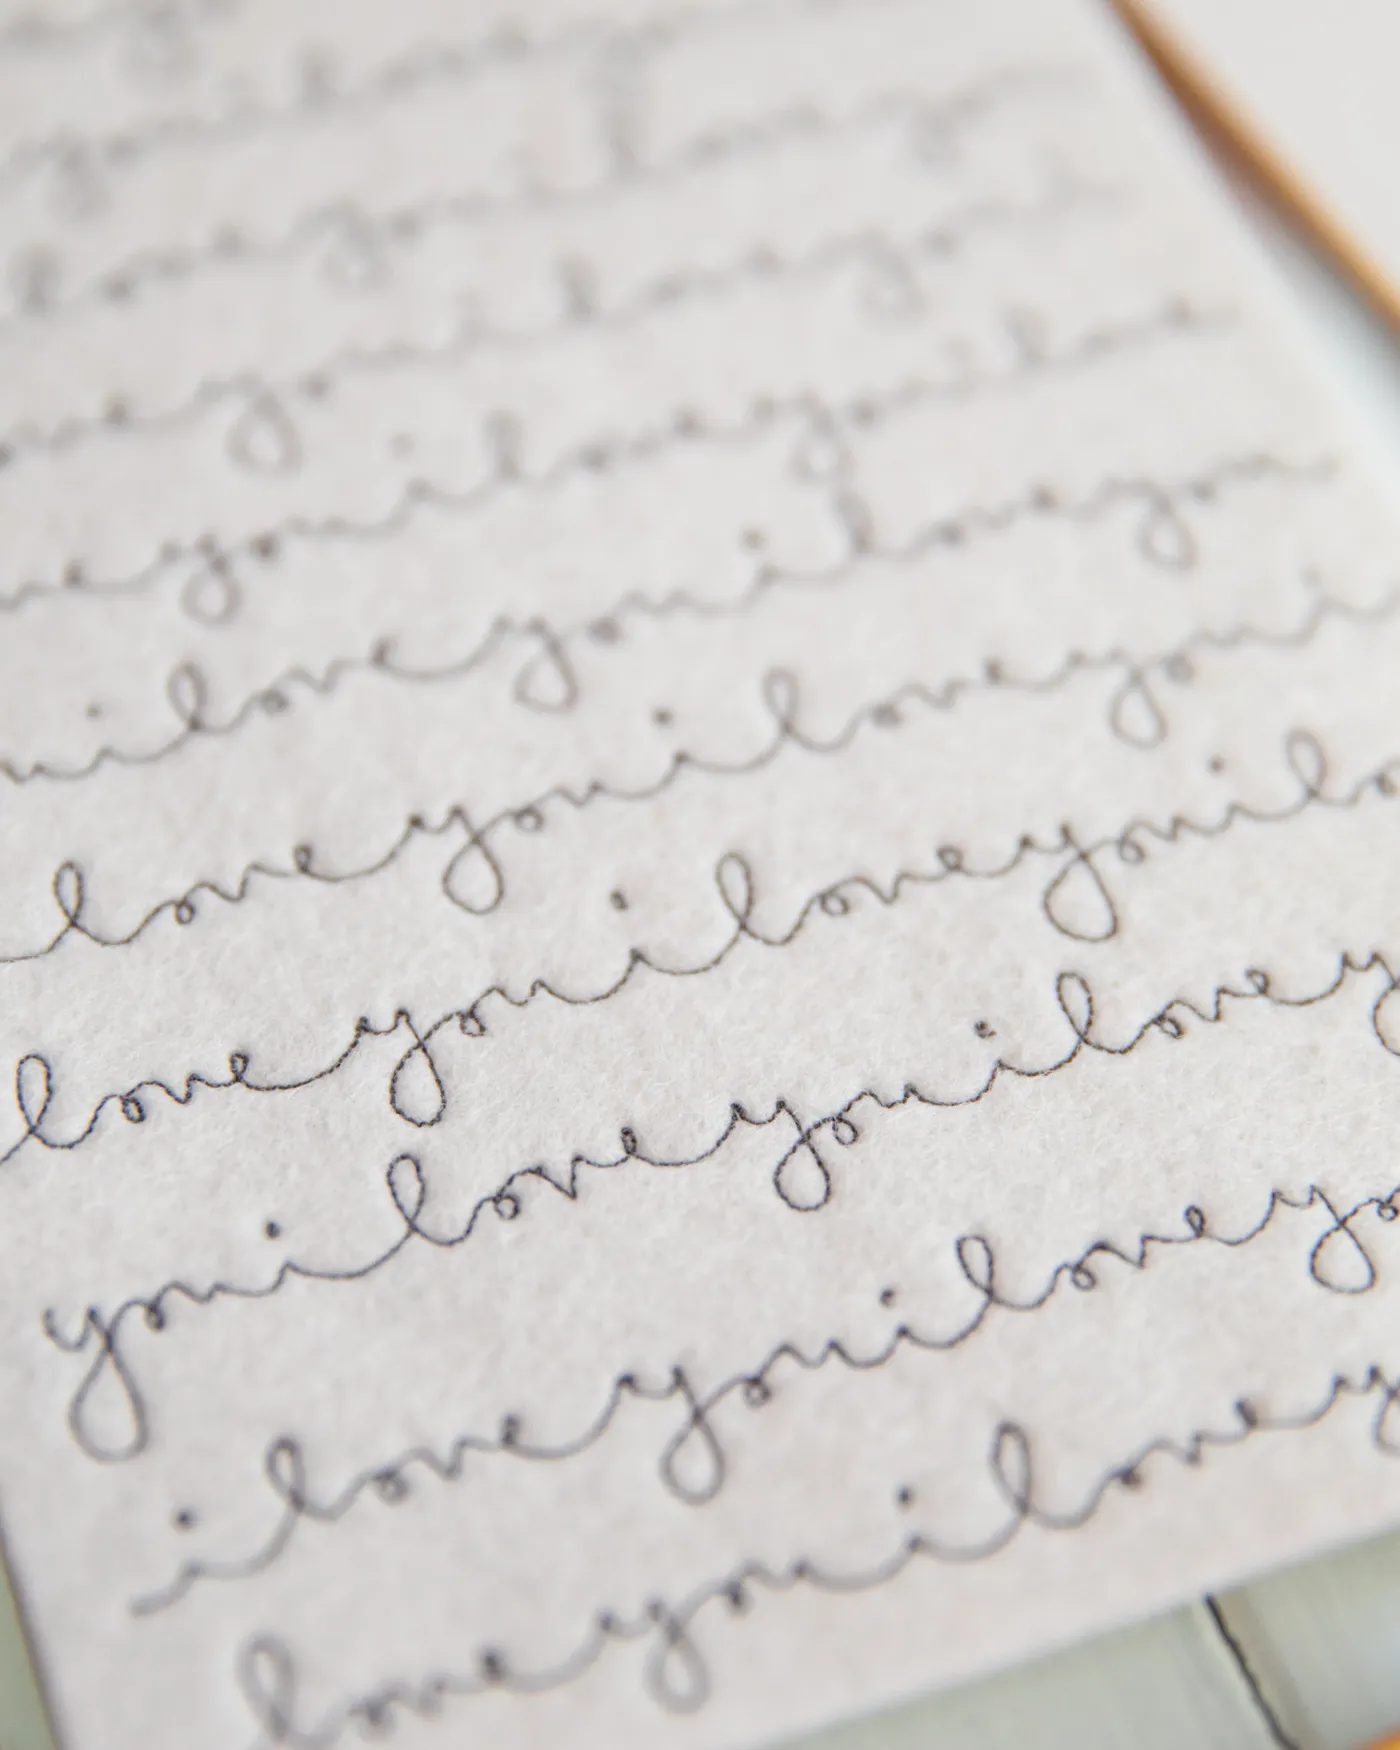 youiloveyou
loveyouiloveyou
oveyouiloveyoui
veyouiloveyouilove
uiloveyouiloveyou
loveyouiloveyoui
loveyouiloveyouilo
youiloveyouilovey
iloveyouiloveyo
loveyouilovey